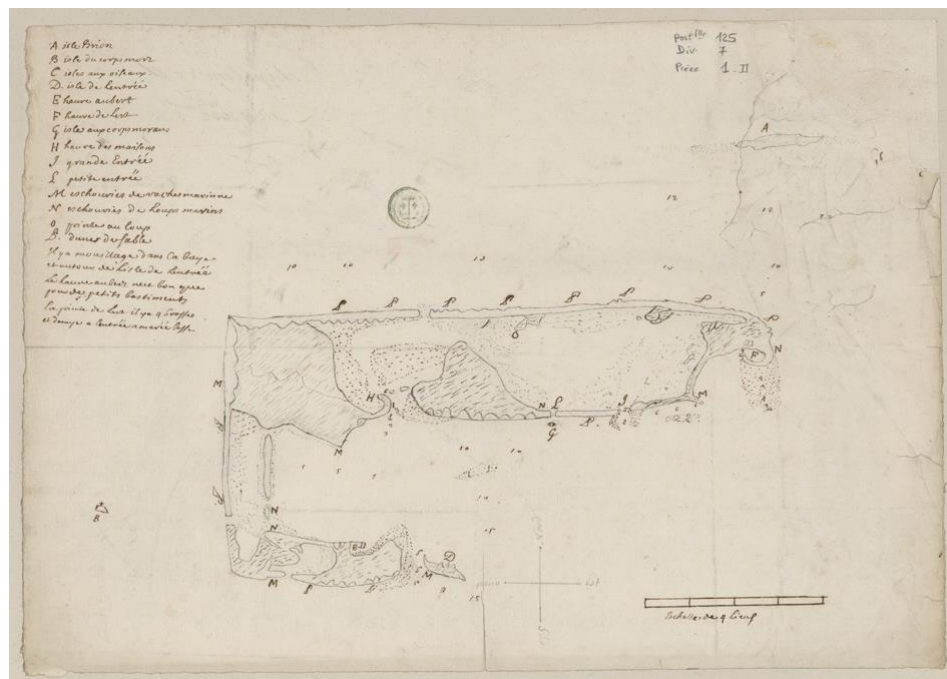 A isle Brion
B isle du corps mort
C isles aux oiseaux
D. isle de Lentrée
E havre aubert
F havre de Lest
G isle aux corps morans
H havre des maisons
J grande Entrée
L petite entrée
M eschouries de vaches marinne
N eschouries de Loups marins
O. pointe au loup
dunes de sable
il y a mouillage dans La baye
et autour de Lisle de Lentrée
Le havre aubert nest bon que
pour des petits bastiments
La pointe de Lest il y a 9 brasses
et demye a Lentrée a marée basse
125
Div 7
Pièce 1-II
A
10 10 10 10
12
O
M
H
N
L
G
J
M
F
N
B
N
N
M
D
M
Eschelle de 4 Lieues